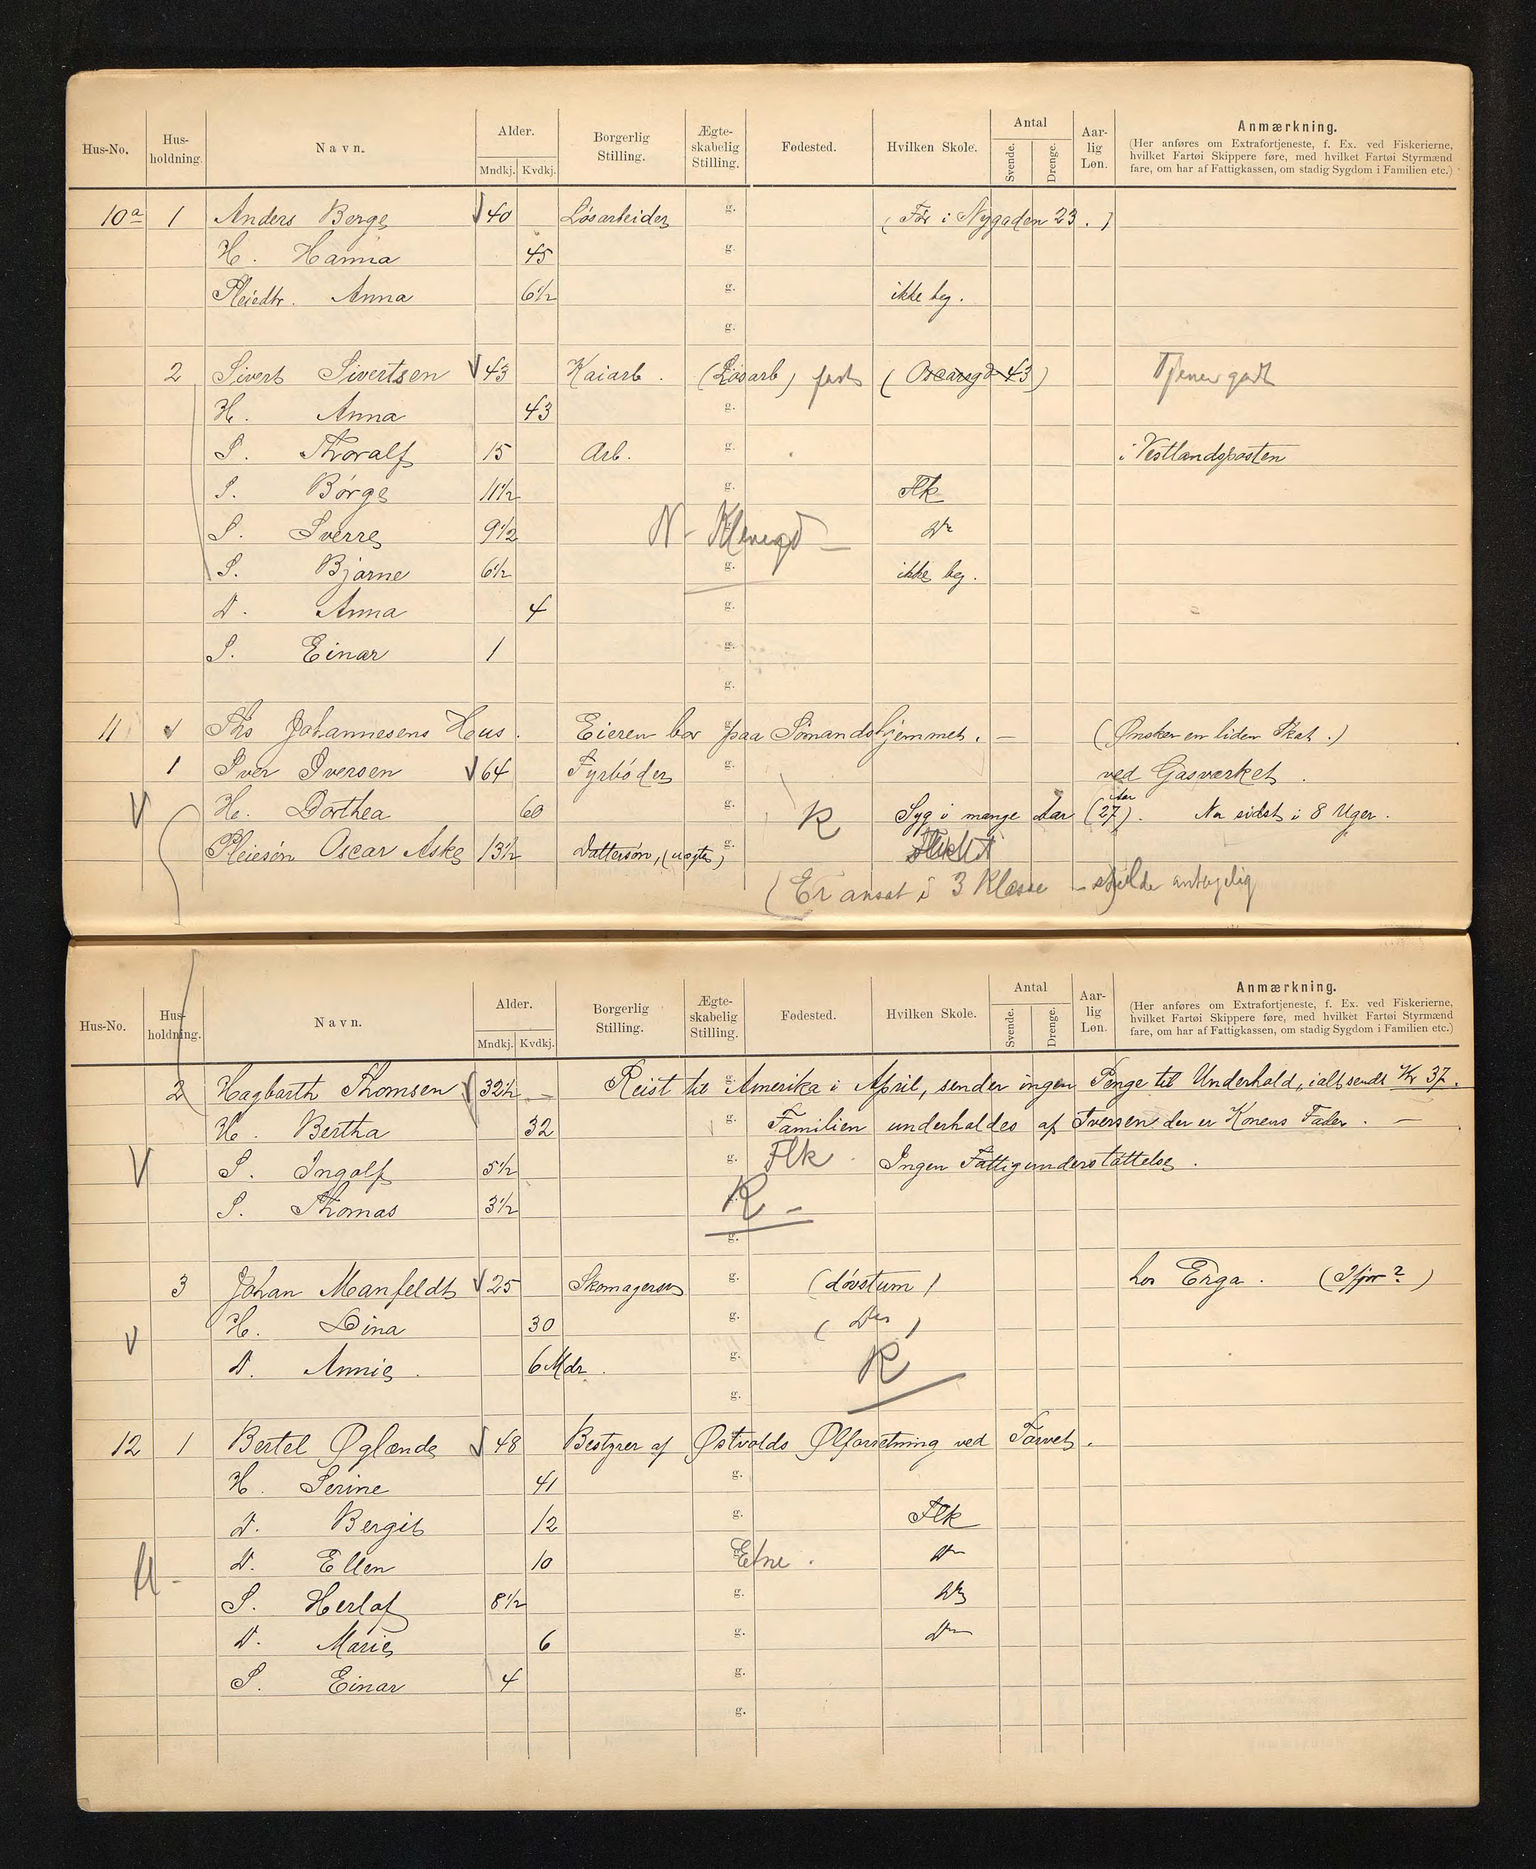 Hus-No. Hus-holdning. Navn. Alder. Mndkj. Kvdkj. Borgerlig Stilling. Ægte-skabelig Stilling. Fødested. Hvilken Skole. Antal Svende. Drenge. Aar-lig Løn. Anmærkning.
(Her anføres om Extrafortjeneste, f. Ex. ved Fiskerierne,
hvilket Fartøi Skippere føre, med hvilket Fartøi Styrmænd
fare, om har af Fattigkassen, om stadig Sygdom i Familien etc.)
10a 1 Anders Berge 40 Løsarbeider g. (Før i Nygaden 23.)
H. Hanna 45 g.
Pleiedtr. Anna 6½ g. ikke beg.
g.
2 Sivert Sivertsen 43 Kaiarb. (Løsarb) fast (Oscarsgd 43) Tjener godt
H. Anna 43 g.
S. Thoralf 15 Arb. g. i Vestlandsposten
S. Børge 11½ g. Flk
S. Sverre 9½ N - g. Do
S. Bjarne 6½ g. ikke beg.
D. Anna 4 g.
S. Einar 1 g.
g.
11 Ths Johannesens Hus. Eieren bor paa Sömandshjemmet. — (Ønsker en liden Skat.)
1 Iver Iversen 64 Fyrbøder g. ved Gasværket.
H. Dorthea 60 g. K Syg i mange Aar (27 Aar). Nu sidst i 8 Uger.
Pleiesøn Oscar Aske 13½ Dattersøn, (uægte) g.
(Er ansat i 3 Klasse - skilde antagelig
Hus-No. Hus-holdning. Navn. Alder. Mndkj. Kvdkj. Borgerlig Stilling. Ægte-skabelig Stilling. Fødested. Hvilken Skole. Antal Svende. Drenge. Aar-lig Løn. Anmærkning.
(Her anføres om Extrafortjeneste, f. Ex. ved Fiskerierne,
hvilket Fartøi Skippere føre, med hvilket Fartøi Styrmænd
fare, om har af Fattigkassen, om stadig Sygdom i Familien etc.)
2 Hagbarth Thomsen 32½ — Reist til Amerika i April, sender ingen Penge til Underhold, ialt sendt Kr 37.
H. Bertha 32 g. Familien underholdes af Iversen der er Konens Fader. —
S. Ingolf 5½ g. Flk Ingen Fattigunderstøttelse.
S. Thomas 3½ g. K —
g.
3 Johan Manfeldt 25 Skomagersv g. (døvstum) hos Erga. (Ifjor?)
H. Lina 30 g. (Do)
D. Annie. 6 Mdr. g. K
g.
12 1 Bertel Oglænde 48 Bestyrer af Østvolds Ølforretning ved Torvet.
H. Serine 41 g.
D. Bergit 12 g. Flk
D. Ellen 10 g. Etne. Do
S. Herlof 8½ g. Do
D. Marie 6 g. Do
S. Einar 4 g.
g.